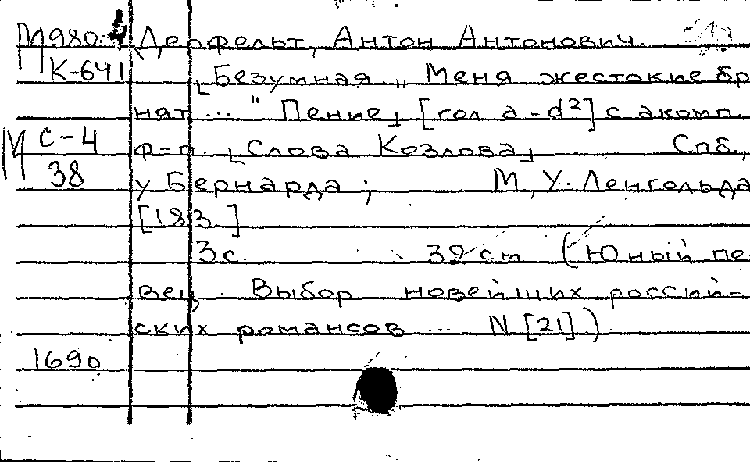 М980.4 Дерфельт, Антон Антонович.
К-641 ⌊Безумная „Меня жестокие бр
нят..." Пение⌋ [гол a-d²] с акомп.
М С-4 ф-п. ⌊Слова Козлова⌋ Спб.,
38 у Бернарда; М., У. Ленгольда
[183 ]
3 с 32 ст (Юный пе-
вец. Выбор новейших россий-
ских романсов... N [21])
1690